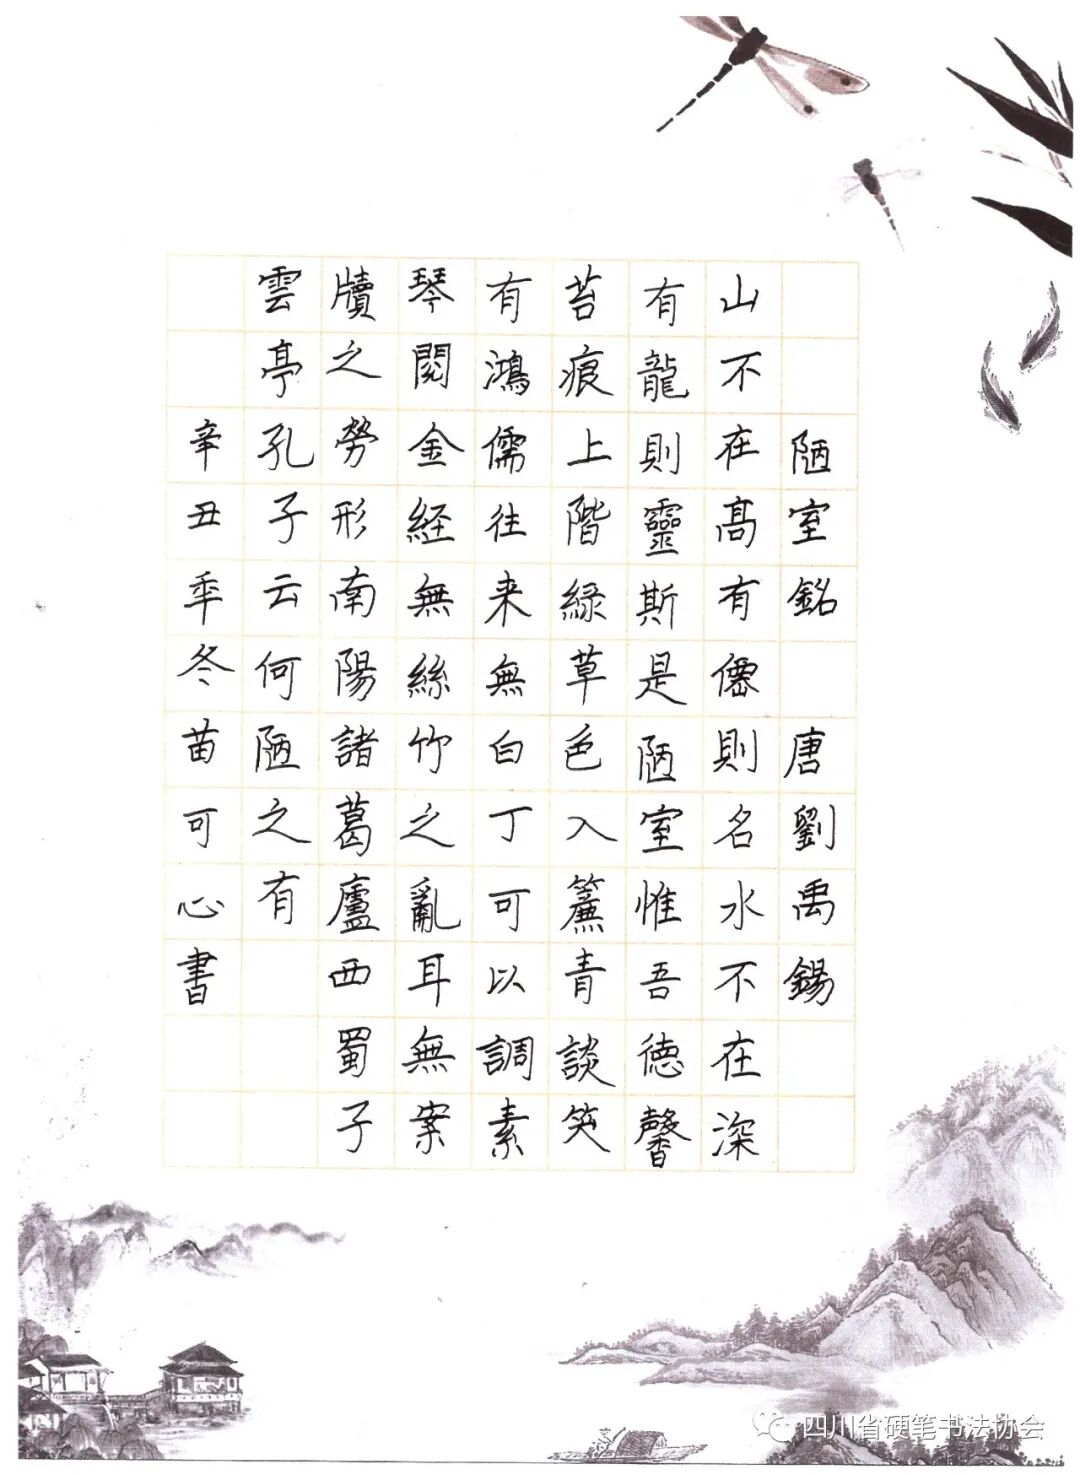 陋室銘 唐劉禹錫
山不在高有僊則名水不在深
有龍則靈斯是陋室惟吾德馨
苔痕上階緑草色入簾青談笑
有鴻儒往来無白丁可以調素
琴閱金経無絲竹之亂耳無案
牘之勞形南陽諸葛廬西蜀子
雲亭孔子云何陋之有
辛丑年冬苗可心書
四川省硬笔书法协会